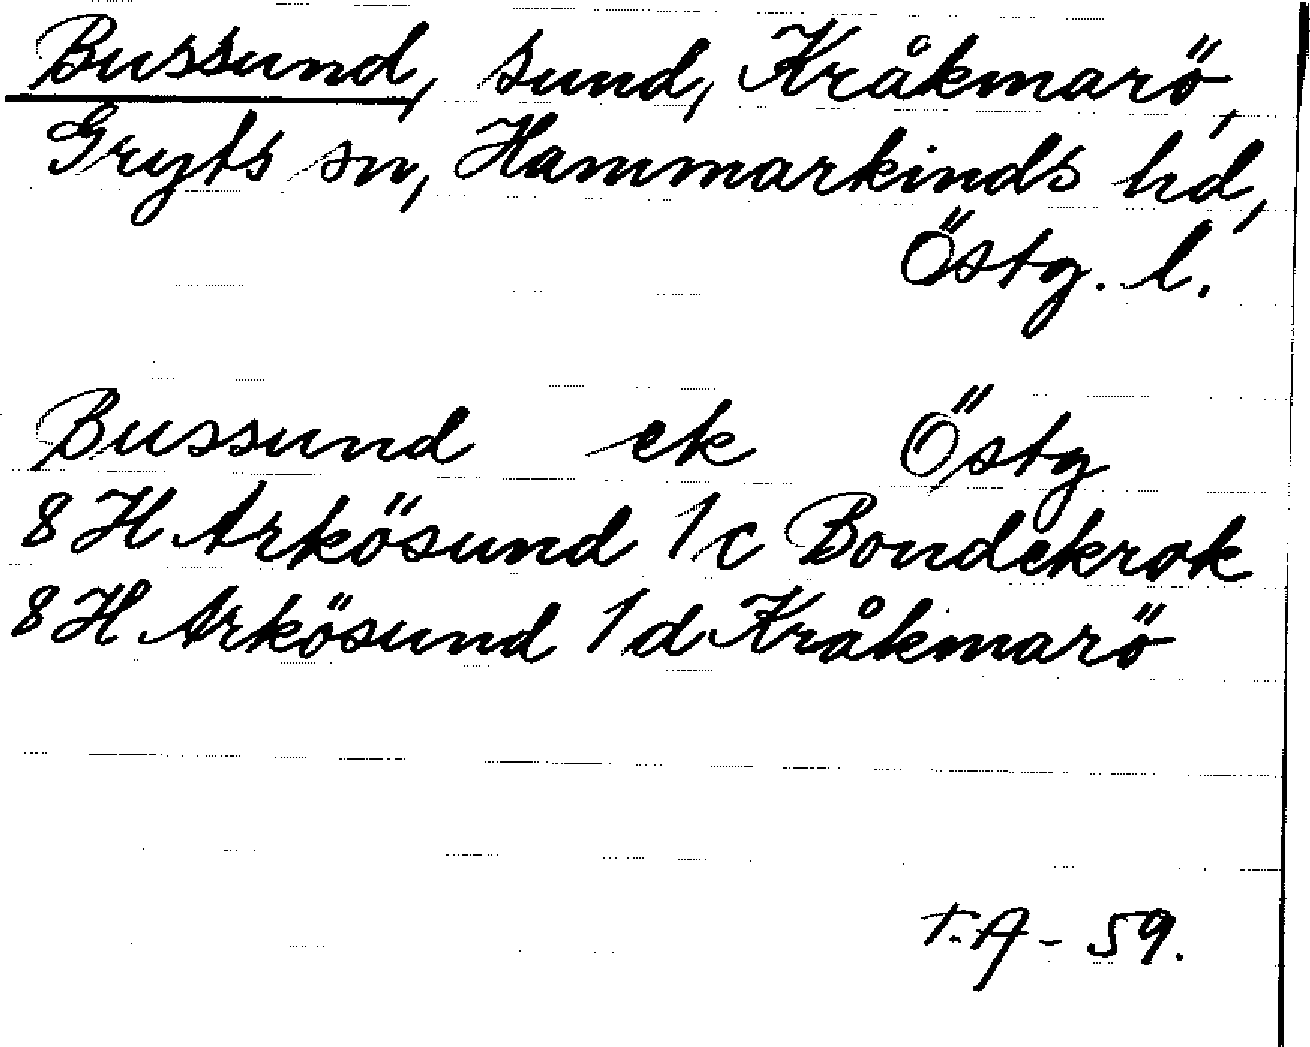 Bussund, sund, Kråkmarö,
Gryts sn, Hammarkinds hd,
Östg. l.
Bussund ek Östg
8 H Arkösund 1 c Bondekrok
8 H Arkösund 1 d Kråkmarö
T.A - 59.